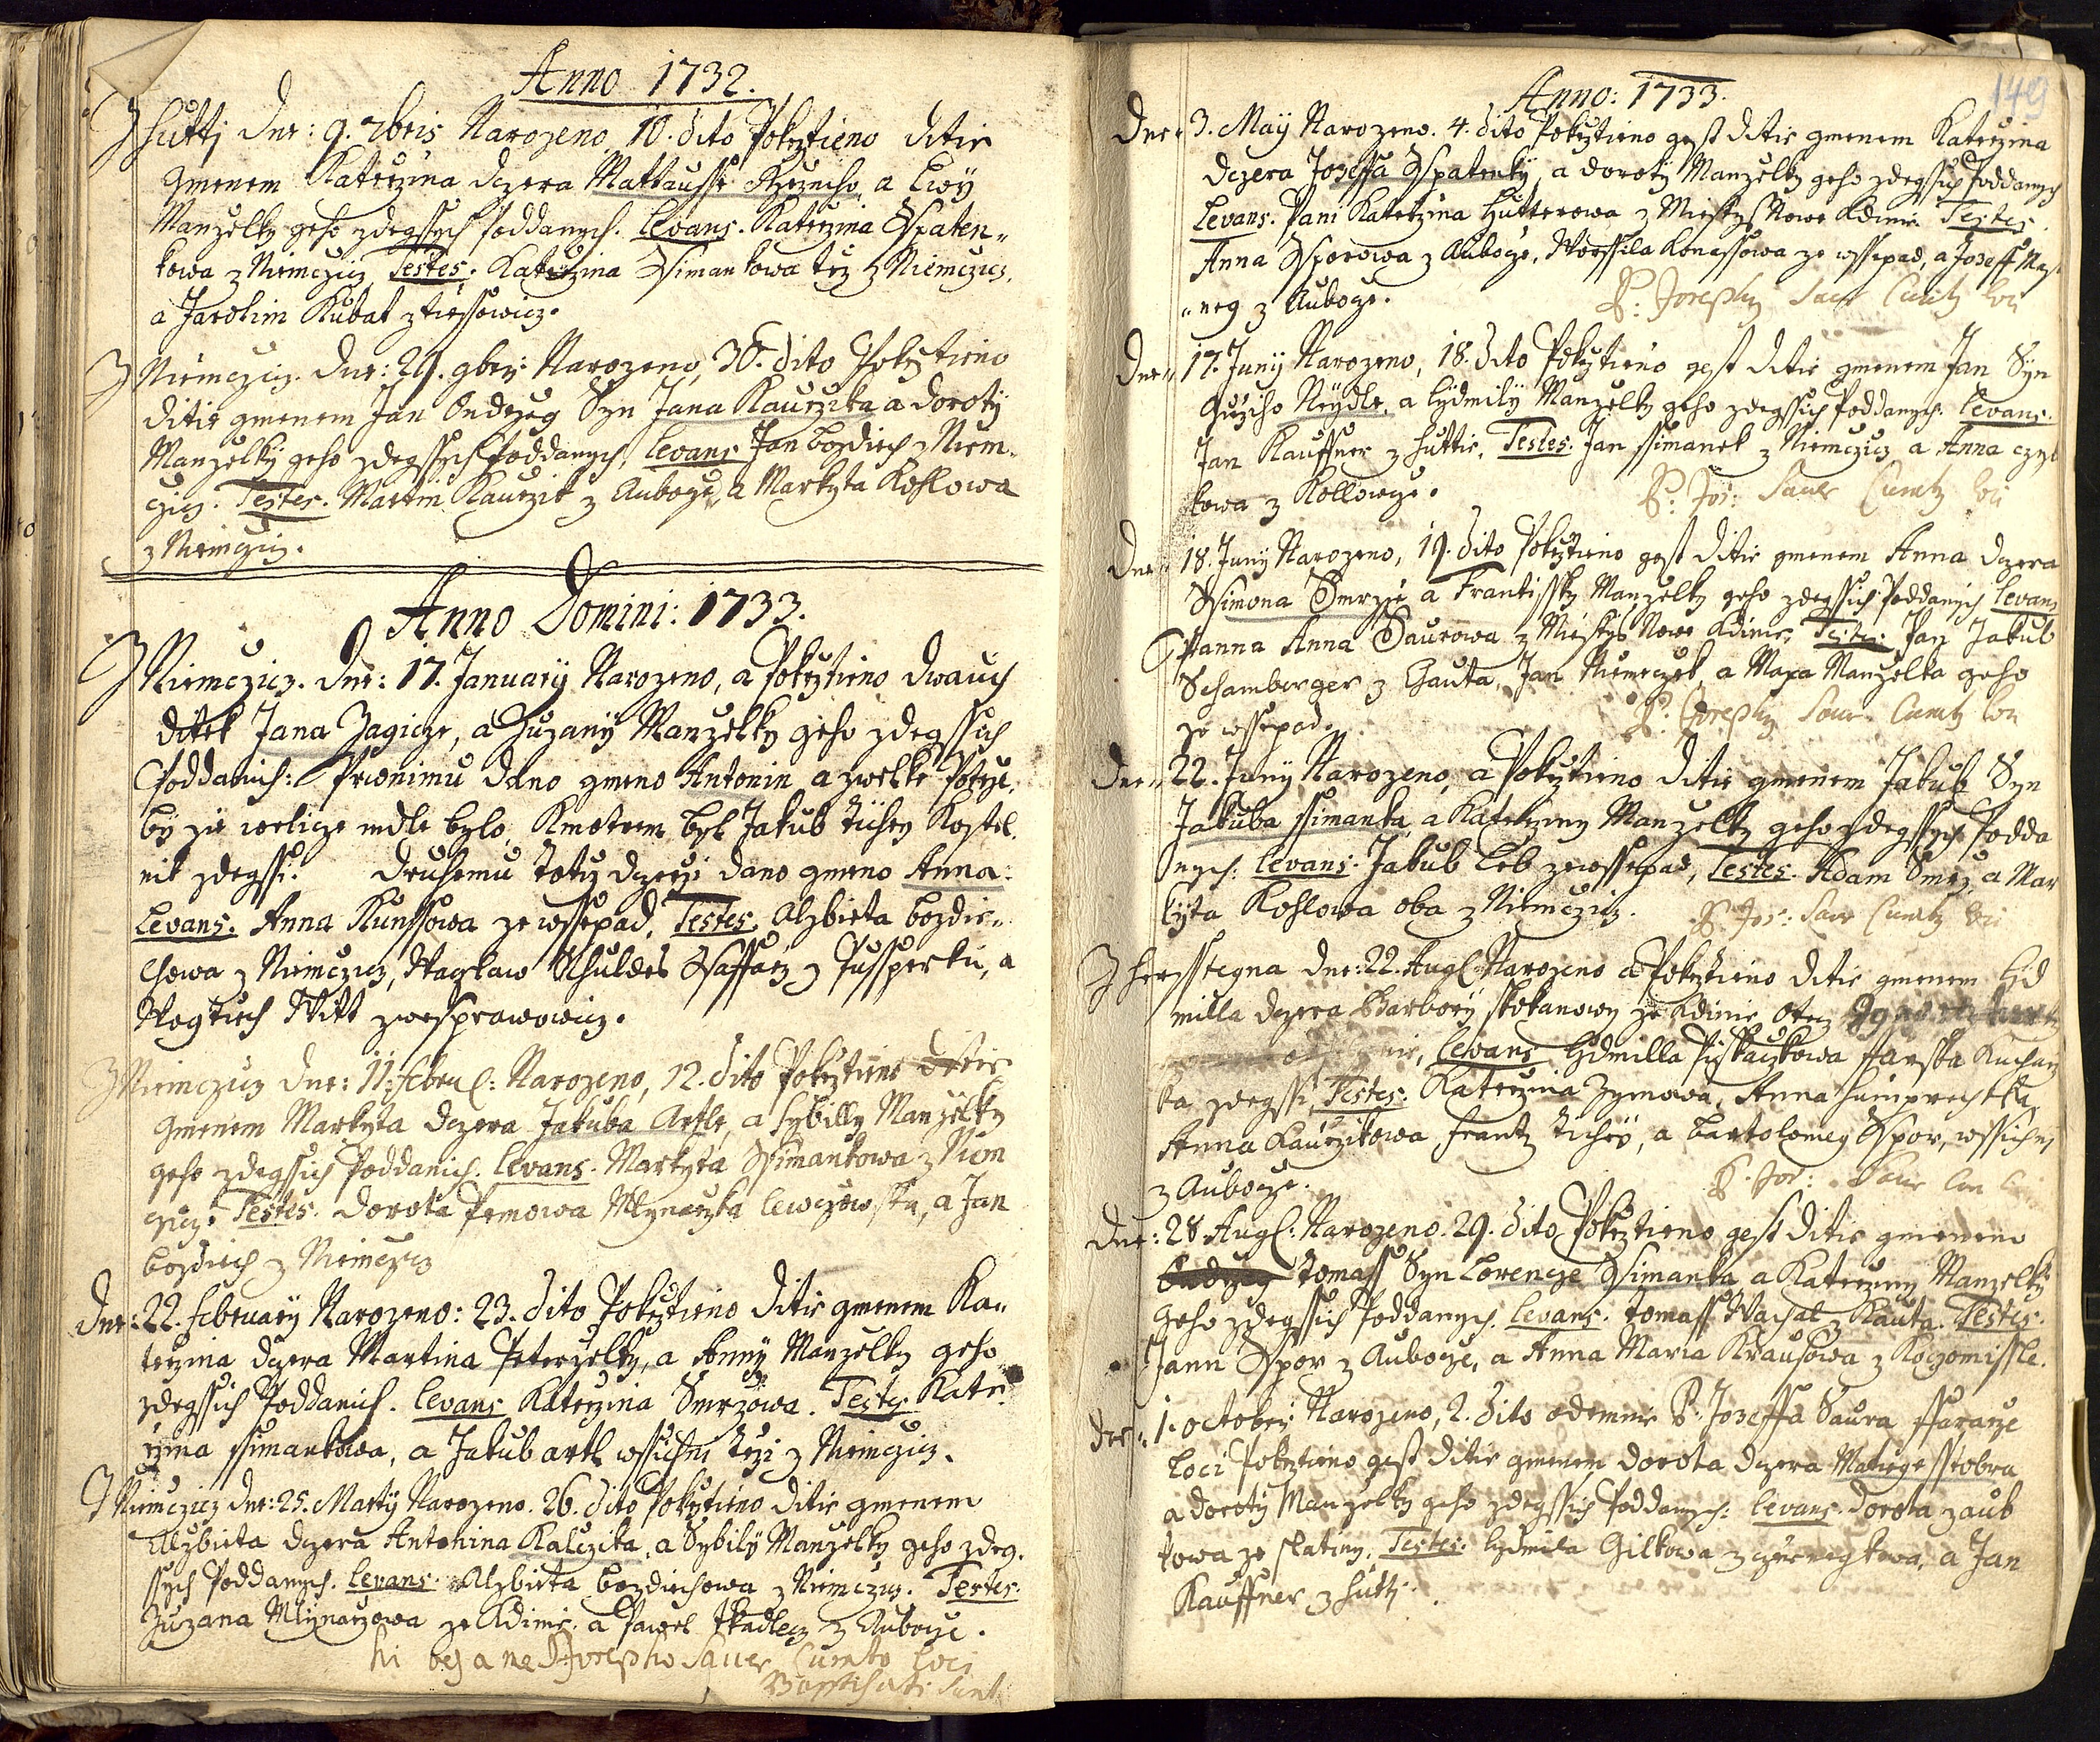 Anno 1732.
Z Hutti dne: 9. 9bris Narozeno, 10. dito Pokrztieno ditie
gmenem Katerzina dczera Mattausse a Ewy
Manzelky geho zdegssych Poddanych. Levans. Katerzina Sspaten„
kowa z Niemczicz, Testes. Katerzina Ssimankowa tez z Niemczicz,
a Jarolim Kubat
Z Niemczicz. Dne: 29. 9bris Narozeno, 30. dito Pokrztieno
ditie gmenem Jan Ondrzeg Syn Jana Kaurzika a Doroty
Manzelky geho zdegssych Poddanych, Levans Jan Bozdiech z Niem„
czicz. Testes. Martin Kaurzik z Auboze, a Markyta Kohlowa
z Niemczicz.
Anno Domini: 1733.
Z Niemczicz. Dne: 17. January Narozeno, a Pokrztieno dwauch
ditek Jana Zagicze, a Zuzany Manzelky geho zdegssich
Poddanich: Prwnimu dano gmeno Antonin a zwelke Potrze„
by ze welicze mdle bylo, Kmotrem byl Jakub Tichey Kostel„
nik zdegssi. Druhemu Totiz dczerzi dano gmeno Anna:
Levans. Anna Kunssowa ze Wssepad, Testes. Alzbieta Bozdie„
chowa z Niemczicz, Waczlaw Schuldes Ssaffarz z Pussperku, a
Wogtiech Witt
Z Niemczicz dne: 11. Febru: Narozeno, 12. dito Pokrztieno ditie
gmenem Markyta dczera Jakuba Artle, a Sybilly Manzelky
geho zdegssich Poddanich. Levans. Markyta Ssimankowa z Niem
czicz. Testes. Dorota Pemowa Mlynarzka, a Jan
Bozdiech z Niemczicz
Dne: 22. February Narozeno: 23. dito Pokrztieno ditie gmenem Ka„
terzina dczera Martina Peterzelky, a Anny Manzelky geho
zdegssich Poddanich. Levans Katerzina Smrzowa. Testes Kate„
rzina Ssimankowa, a Jakub Artl wssichni trzi z Niemczicz.
Z Niemczicz dne: 25. Marty Narozeno. 26. dito Pokrztieno ditie gmenem
Alzbieta dczera Antonina Kalczika, a Sybily Manzelky geho zdeg„
ssych Poddanych. Levans. Alzbieta Bozdiechowa z Niemczicz. Testes.
Zuzana Mlynarzowa ze Kdinie, a Pawel Tkadlecz z Auboze.
hi a me P. Josepho Sauer Curato Loci
Baptisati Sunt
149
Anno: 1733.
Dne„ 3. May Narozeno. 4. dito Pokrztieno gest ditie gmenem Katerzina
dczera Joseffa Sspatenky, a Doroty Manzelky geho zdegssich Poddanych
Levans. Pani Katerzina Hutterowa z Miestys Nowe Kdinie. Testes.
Anna Ssporowa z Auboze, Worssila Konassowa ze Wssepad, a Joseff
„neg z Auboze.
P: Josephus Saur Curatus Loci
Dne„ 17. Juny Narozeno, 18. dito Pokrztieno gest ditie gmenem Jan Syn
Girziho Neydle, a Lydmily Manzelky geho zdegssich Poddanych. Levans.
Jan Kauffner z Huttie, Testes. Jan Ssimanek z Niemczicz, a Anna
kowa z Kollowcze.
P: Jos: Saur Curatus Loci
Dne„ 18. Juny Narozeno, 19. dito Pokrztieno gest ditie gmenem Anna dczera
Ssimona Smrze a Frantissky Manzelky geho zdegssich Poddanych Levans
Panna Anna Saurowa z Miestys Nowe Kdinie, Testes: Pan Jakub
Schamberger z Chauta, Jan Niemeczek, a Maria Manzelka geho
ze Wssepad.
P: Josephus Saur Curatus Loci
Dne„ 22. Juny Narozeno, a Pokrztieno ditie gmenem Jakub Syn
Jakuba Ssimanka, a Katerziny Manzelky geho zdegssych Podda
nych: Levans. Jakub Leb ze Wssepad, Testes. Adam Smrz, a Mar
kyta Kohlowa oba z Niemczicz.
P: Jos: Saur Curatus Loci
Z dne: 22. Aug: Narozeno a Pokrztieno ditie gmenem Lid
milla dczera Barbory Skokanowy ze Kdinie Otecz
Levans Lydmilla
ka zdegssi, Testes: Katerzina Zymowa, Anna Humprechtka,
Anna Kaurzikowa, Frantz Tichey, a Bartolomeg Sspor, wssichni
z Auboze.
P: Jos: Saur
Dne: 28 Aug: Narozeno. 29. dito Pokrztieno gest ditie gmenem
Tomass Syn Lorencze Ssimanka a Katerziny Manzelky
geho zdegssich Poddanych. Levans. Tomass Wachal z Kauta. Testes.
Jann Sspor z Auboze, a Anna Maria Krausowa z Koczomissle.
Dne„ 1. Octobris Narozeno, 2. dito odemnie P: Joseffa Saura Ffararze
Loci Pokrztieno gest ditie gmenem Dorota dczera Matiege Sstobra
a Doroty Manzelky geho zdegssich Poddanych: Levans. Dorota Zaub
kowa ze Slatiny, Testes. Lydmila Gilkowa, a Jan
Kauffner z Hutti.